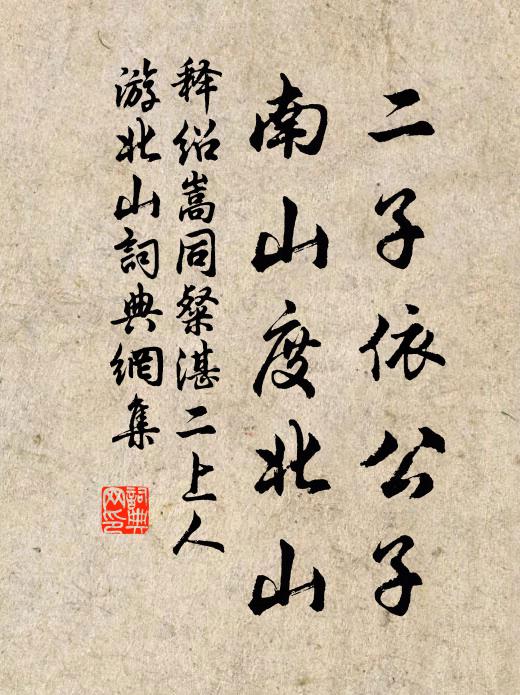 二子依公子
南山度北山
释绍嵩同粲湛二上人
游北山詞典網集
詞典
网印